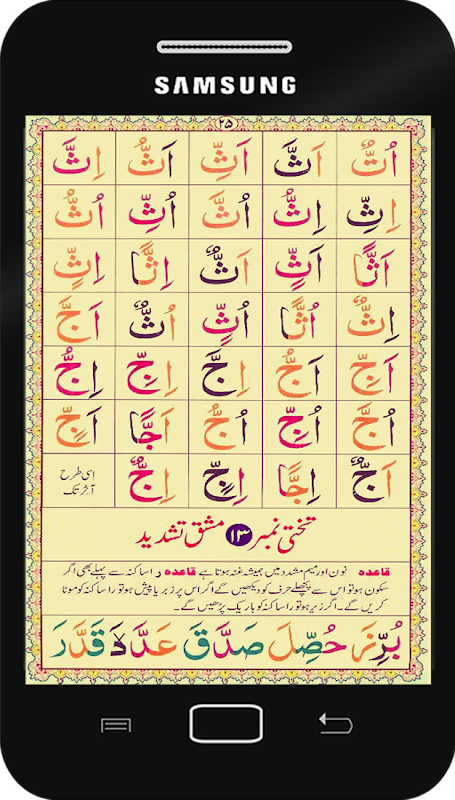 SAMSUNG
۲۵
اُتٌّ اَثَّ اَثِّ اَثُّ اِثَّ
اِثِّ اِثُّ اُثَّ اُثِّ اُثُّ
اَثًّا اَثٍّ اَثٌّ اِثًّا اِثٍّ
اِثٌّ اُثًّا اُثٍّ اُثٌّ اَجَّ
اَجِّ اَجُّ اِجَّ اِجِّ اِجُّ
اُجَّ اُجِّ اُجُّ اَجًّا اَجٍّ
اَجٌّ اِجًّا اِجٍّ اِجٌّ اِسی طرح
آخِر تک
تختی نمبر ۱۳ مشق تشدید
قاعدہ نون اور میم مشدد میں ہمیشہ غنہ ہوتا ہے قاعدہ را ساکنہ سے پہلے بھی اگر
سکون ہو تو اس سے پچھلے حرف کو دیکھیں گے اگر اس پر زبر یا پیش ہو تو را ساکنہ کو موٹا
کریں گے۔ اگر زیر ہو تو را ساکنہ کو باریک پڑھیں گے۔
بُرِّزَ حُصِّلَ صَدَّقَ عَدَّدَهٗ قَدَّرَ